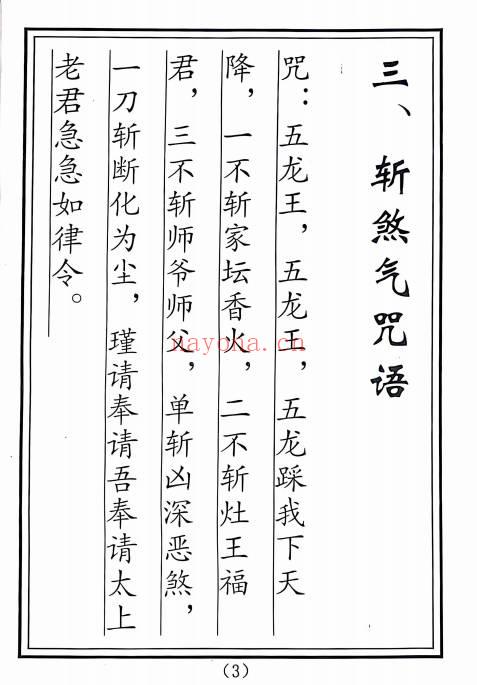 三、斩煞气咒语
咒：五龙王，五龙王，五龙踩我下天
降，一不斩家坛香火，二不斩灶王福
君，三不斩师爷师父，单斩凶深恶煞，
一刀斩断化为尘，瑾请奉请吾奉请太上
老君急急如律令。
nayona.cn
（3）